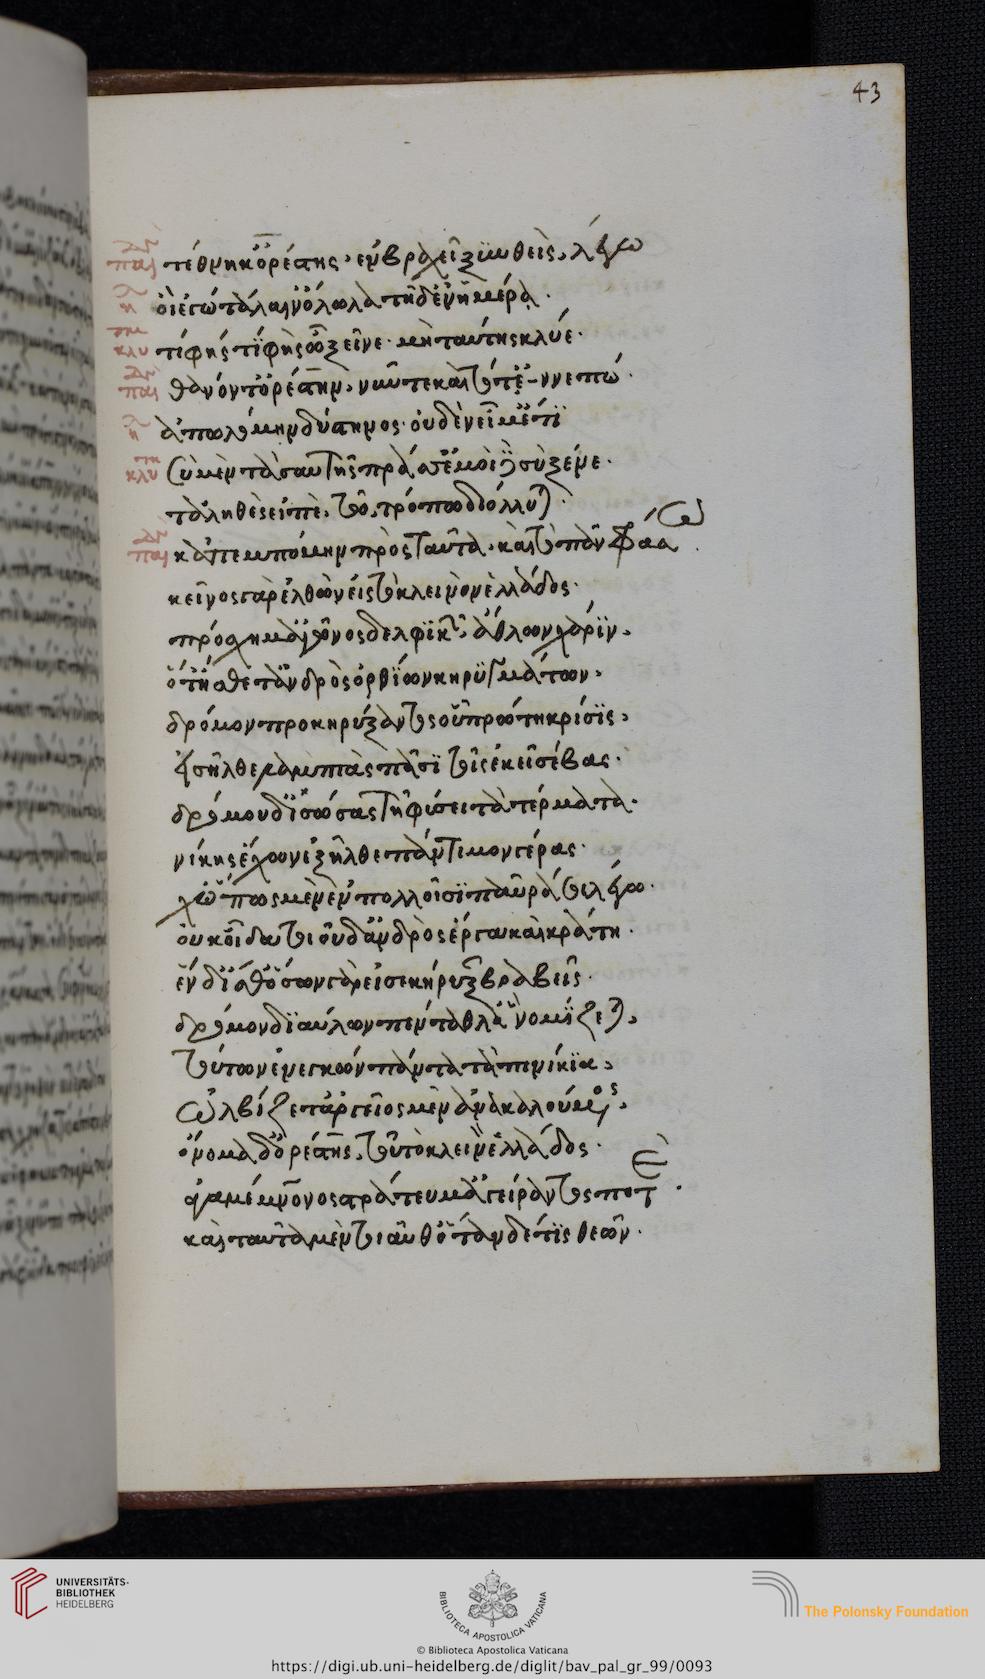 43
παι τέθνηκ' ὀρέστης· ἐν βραχεῖ ξυνθεὶς λέγω
ἠ οἲ ἐγὼ τάλαιν' ὄλωλα τῆδ' ἐν ἡμέρα·
κλυ τί φής τί φὴς ὦ ξεῖνε· μὴ ταύτης κλύε·
παι θανόντ' ὀρέστην, νῦν τε καὶ τότ' ἐννέπω·
ἠ ἀπωλόμην δύστηνος· οὐδέν εἰμ' ἔτι
κλυ σὺ μὲν τὰ σαυτῆς πράσσ' ἐμοὶ δὲ σὺ ξένε·
τἀληθὲς εἰπὲ, τῶ τρόπω διόλλυται·
παι κἀπεμπόμην πρὸς ταῦτα· καὶ τὸ πᾶν φράσω·
κεῖνος γὰρ ἐλθὼν εἰς τὸ κλεινὸν ἑλλάδος·
πρόσχημ' ἀγῶνος δελφικῶν ἄθλων χάριν,
ὅτ' ἤσθετ' ἀνδρὸς ὀρθίων κηρυγμάτων,
δρόμον προκηρύξαντος οὗ πρώτη κρίσις,
εἰσῆλθε λαμπρὸς πᾶσι τοῖς ἐκεῖ σέβας·
δρόμου δ' ἰσώσας τῆ φύσει τὰ τέρματα·
νίκης ἔχων ἐξῆλθε πάντιμον γέρας·
χὤπως μὲν ἐν πολλοῖσι παῦρά σοι λέγω·
οὐκ οἶδα τοιοῦδ' ἀνδρὸς ἔργα καὶ κράτη·
ἓν δ' ἴσθ' ὅσων γὰρ εἰσεκήρυξαν βραβεῖς·
δρόμων διαύλων πένταθλ' ἃ νομίζεται,
τούτων ἐνεγκὼν πάντα τἀπινίκια,
ὠλβίζετ' ἀργεῖος μὲν ἀνακαλούμενος,
ὄνομα δ' ὀρέστης, τοῦ τὸ κλεινὸν ἑλλάδος·
ἀγαμέμνονος στράτευμ' ἀγείραντός ποτε·
καὶ ταῦτα μὲν τοιαῦθ' ὅταν δέ τις θεῶν·
UNIVERSITÄTS-
BIBLIOTHEK
HEIDELBERG
BIBLIOTECA APOSTOLICA VATICANA
The Polonsky Foundation
© Biblioteca Apostolica Vaticana
https://digi.ub.uni-heidelberg.de/diglit/bav_pal_gr_99/0093